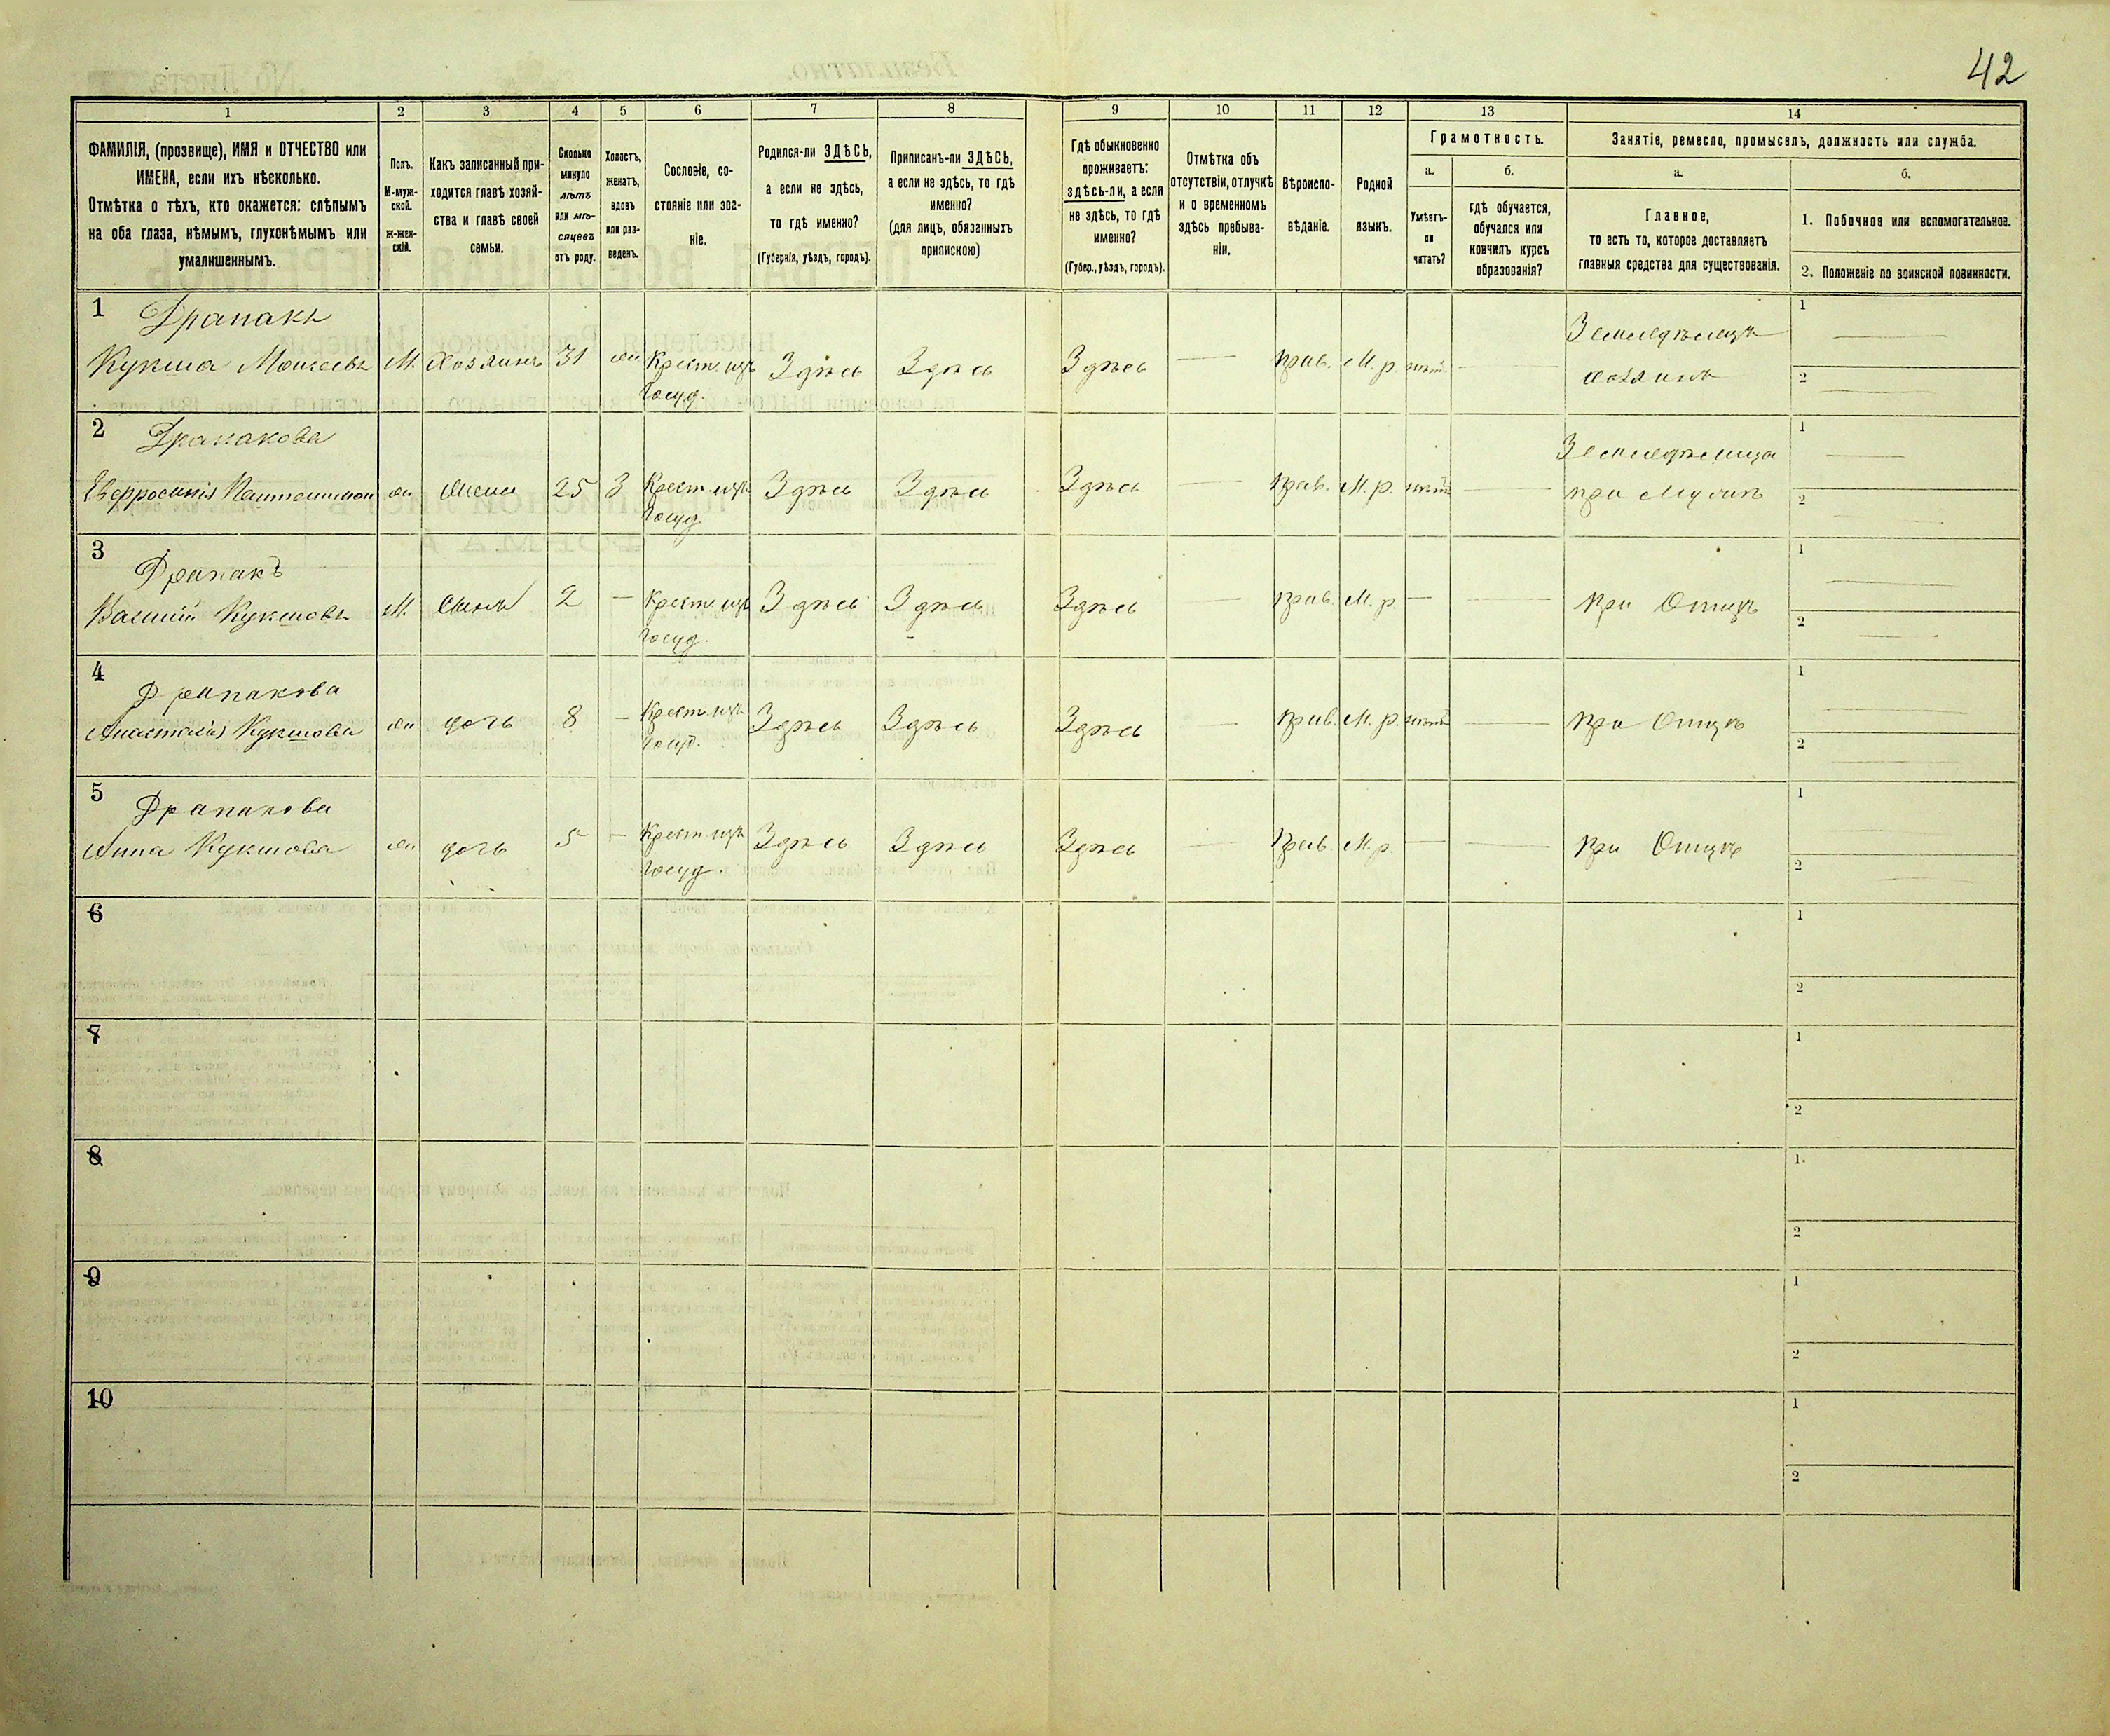 42
1 2 3 4 5 6 7 8 9 10 11 12 13 14
ФАМИЛІЯ, (прозвище), ИМЯ и ОТЧЕСТВО или
ИМЕНА, если ихъ нѣсколько.
Отмѣтка о тѣхъ, кто окажется: слѣпымъ
на оба глаза, нѣмымъ, глухонѣмымъ или
умалишеннымъ.
Полъ.
М-муж-
ской.
Ж-жен-
скій.
Какъ записанный при-
ходится главѣ хозяй-
ства и главѣ своей
семьи.
Сколько
минуло
лѣтъ
или мѣ-
сяцевъ
отъ роду.
Холостъ,
женатъ,
вдовъ
или раз-
веденъ.
Сословіе, со-
стояніе или зва-
ніе.
Родился-ли ЗДѢСЬ,
а если не здѣсь,
то гдѣ именно?
(Губернія, уѣздъ, городъ).
Приписанъ-ли ЗДѢСЬ,
а если не здѣсь, то гдѣ
именно?
(для лицъ, обязанныхъ
припискою)
Гдѣ обыкновенно
проживаетъ:
здѣсь-ли, а если
не здѣсь, то гдѣ
именно?
(Губер., уѣздъ, городъ).
Отмѣтка объ
отсутствіи, отлучкѣ
и о временномъ
здѣсь пребыва-
ніи.
Вѣроиспо-
вѣданіе.
Родной
языкъ.
Грамотность.
а.
Умѣетъ-
ли
читать?
б.
гдѣ обучается,
обучался или
кончилъ курсъ
образованія?
Занятіе, ремесло, промыселъ, должность или служба.
а.
Главное,
то есть то, которое доставляетъ
главныя средства для существованія.
б.
1. Побочное или вспомогательное.
2. Положеніе по воинской повинности.
1 Драпакъ Земледѣлецъ 1
Кукша Моисеевъ М. Хозяинъ 31 ж Крест. изъ Здѣсь Здѣсь Здѣсь — прав. М. р. нѣтъ — хозяинъ 2
Госуд.
2 Драпакова Земледѣлица 1
Евфросинія ж жена 25 З Крест. изъ Здѣсь Здѣсь Здѣсь — прав. М. р. нѣтъ — при Мужѣ 2
Госуд.
3 Драпакъ 1
Василій Кукшовъ М. сынъ 2 — Крест. изъ Здѣсь Здѣсь Здѣсь — прав. М. р. — — при Отцѣ 2
Госуд.
4 Драпакова 1
Анастасія Кукшова ж дочь 8 — Крест. изъ Здѣсь Здѣсь Здѣсь — прав. М. р. нѣтъ — при Отцѣ 2
Госуд.
5 Драпакова 1
Анна Кукшова ж дочь 5 — Крест. изъ Здѣсь Здѣсь Здѣсь — прав. М. р. — — при Отцѣ 2
Госуд.
6 1
2
7 1
2
8 1
2
9 1
2
10 1
2